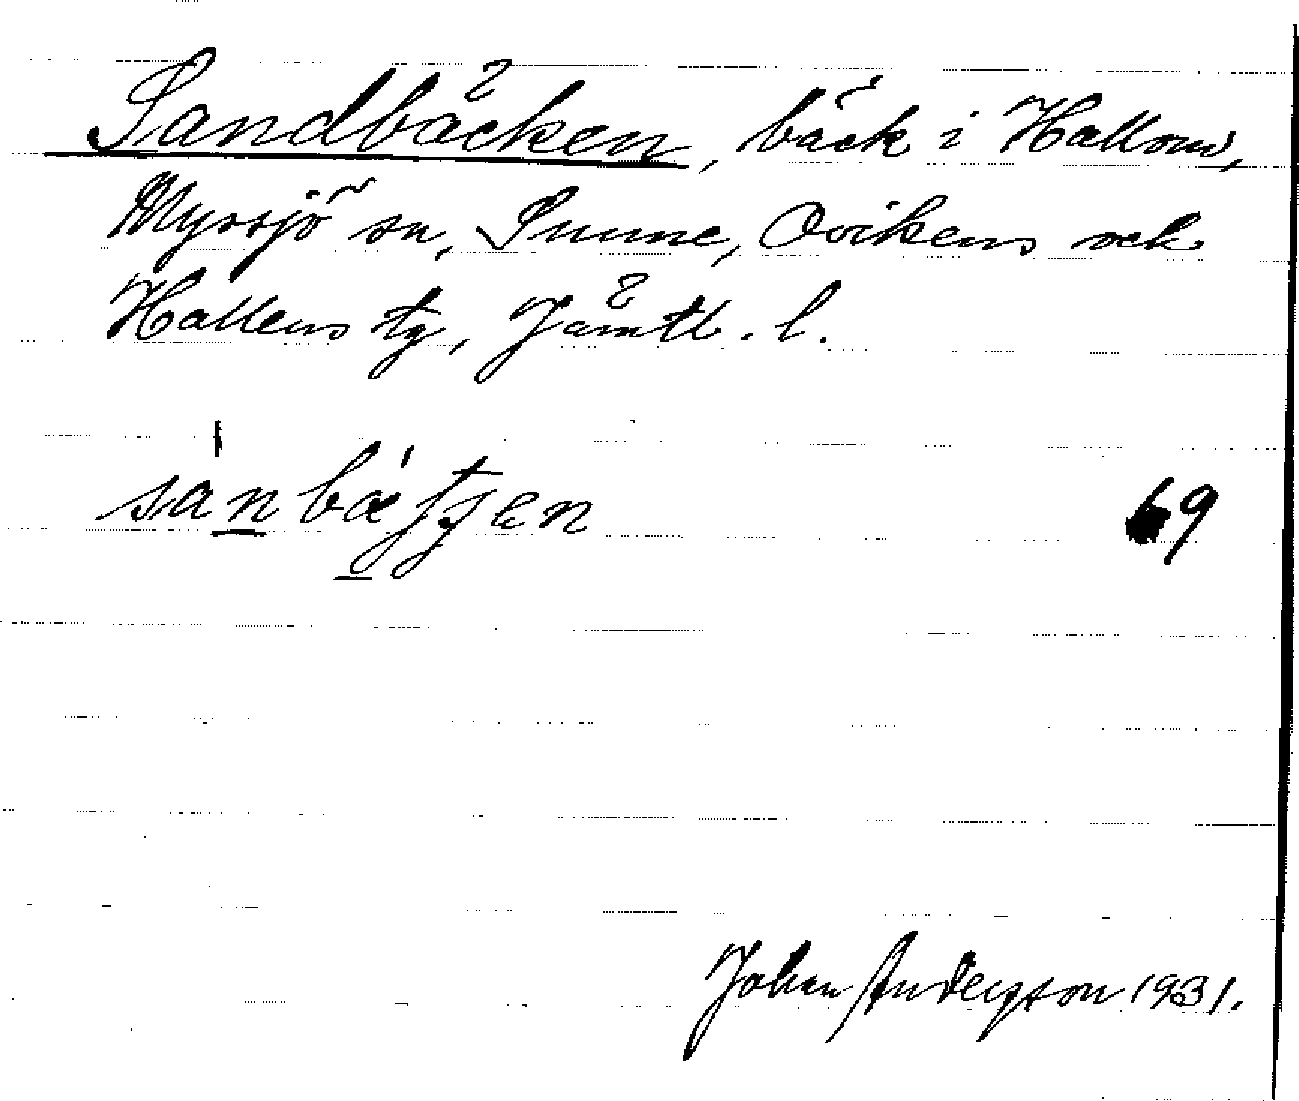 Sandbäcken, bäck i Hallom,
Myssjö sn, Sunne, Ovikens och
Hallens tg, Jämtl. l.
69
Johan Anderson 1931.